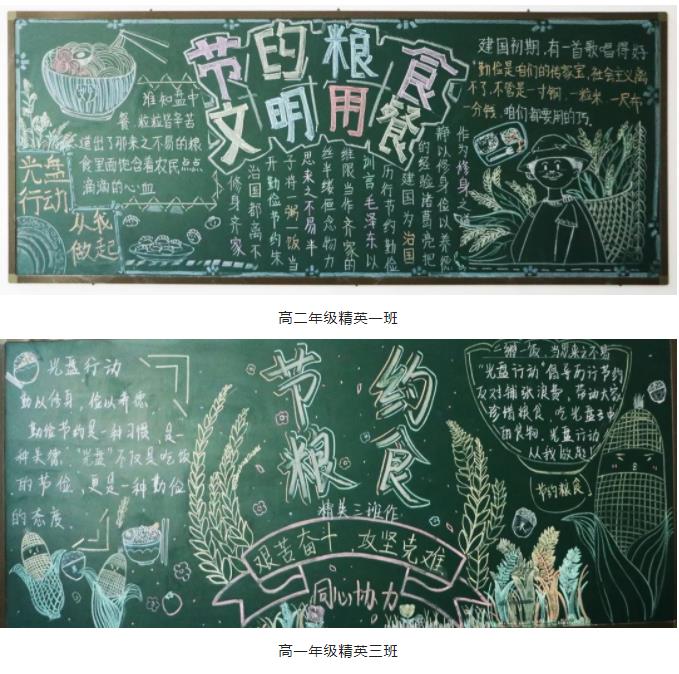 节约粮食
文明用餐
谁知盘中
餐,粒粒皆辛苦
道出了那来之不易的粮
食里面饱含着农民点点
滴滴的心血
光盘
行动
从我
做起
建国初期,有一首歌唱得好
"勤俭是咱们的传家宝,社会主义离
不了,不管是一寸钢,一粒米,一尺布
一分钱,咱们都要用的巧。
修身齐家
治国都离不
开勤俭节约朱
子将一粥一饭当
思来之不易半
丝半缕恒念物力
维限当作齐家的
训言毛泽东以
历行节约勤俭
建国为治国
的经验诸葛亮把
静以修身俭以养德
作为修身之
高二年级精英一班
光盘行动
勤以修身,俭以养德
勤俭节约是一种习惯,是一
种美德,"光盘"不仅是吃饭
的节俭,更是一种勤俭
的态度。
节约
粮食
精英三班作
艰苦奋斗 攻坚克难
同心协力
一粥一饭,当思来之不易
"光盘行动"倡导厉行节约
反对铺张浪费,带动大家
珍惜粮食、吃光盘子中
的食物,光盘行动
从我做起!
节约粮食
高一年级精英三班